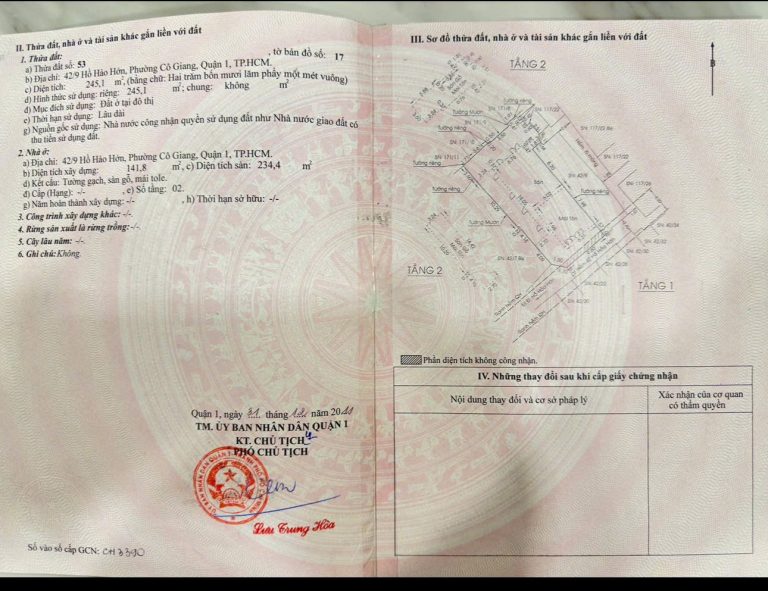 II. Thửa đất, nhà ở và tài sản khác gắn liền với đất
1. Thửa đất:
a) Thửa đất số: 53 , tờ bản đồ số: 17
b) Địa chỉ: 42/9 Hồ Hảo Hớn, Phường Cô Giang, Quận 1, TP.HCM.
c) Diện tích: 245,1 m², (bằng chữ: Hai trăm bốn mươi lăm phẩy một mét vuông)
d) Hình thức sử dụng: riêng: 245,1 m²; chung: không m²
đ) Mục đích sử dụng: Đất ở tại đô thị
e) Thời hạn sử dụng: Lâu dài
g) Nguồn gốc sử dụng: Nhà nước công nhận quyền sử dụng đất như Nhà nước giao đất có
thu tiền sử dụng đất.
2. Nhà ở:
a) Địa chỉ: 42/9 Hồ Hảo Hớn, Phường Cô Giang, Quận 1, TP.HCM.
b) Diện tích xây dựng: 141,8 m², c) Diện tích sàn: 234,4 m²
d) Kết cấu: Tường gạch, sàn gỗ, mái tole.
đ) Cấp (Hạng): -/- , e) Số tầng: 02.
g) Năm hoàn thành xây dựng: -/- , h) Thời hạn sở hữu: -/-
3. Công trình xây dựng khác: -/-
4. Rừng sản xuất là rừng trồng:-/-.
5. Cây lâu năm: -/-.
6. Ghi chú:Không.
Quận 1, ngày 31 tháng 12 năm 2011
TM. ỦY BAN NHÂN DÂN QUẬN 1
KT. CHỦ TỊCH
PHÓ CHỦ TỊCH
Lưu Trung Hòa
Số vào sổ cấp GCN: CH 3390
III. Sơ đồ thửa đất, nhà ở và tài sản khác gắn liền với đất
B
TẦNG 2
SN: 171/8
SN: 117/22
Tường Mượn
Tường riêng
SN: 171/9
Tường riêng
SN: 171/11
SN: 117/22 Bis
Hẻm Bê tông
Tường riêng
Sân
SN: 42/9
SN: 117/26
Tường riêng
Tường Mượn
Mái tôn
SN: 42/7 Bis
SN: 42/34
SN: 42/32
TẦNG 2
TẦNG 1
SN: 42/30
Phần diện tích không công nhận.
IV. Những thay đổi sau khi cấp giấy chứng nhận
Nội dung thay đổi và cơ sở pháp lý
Xác nhận của cơ quan
có thẩm quyền